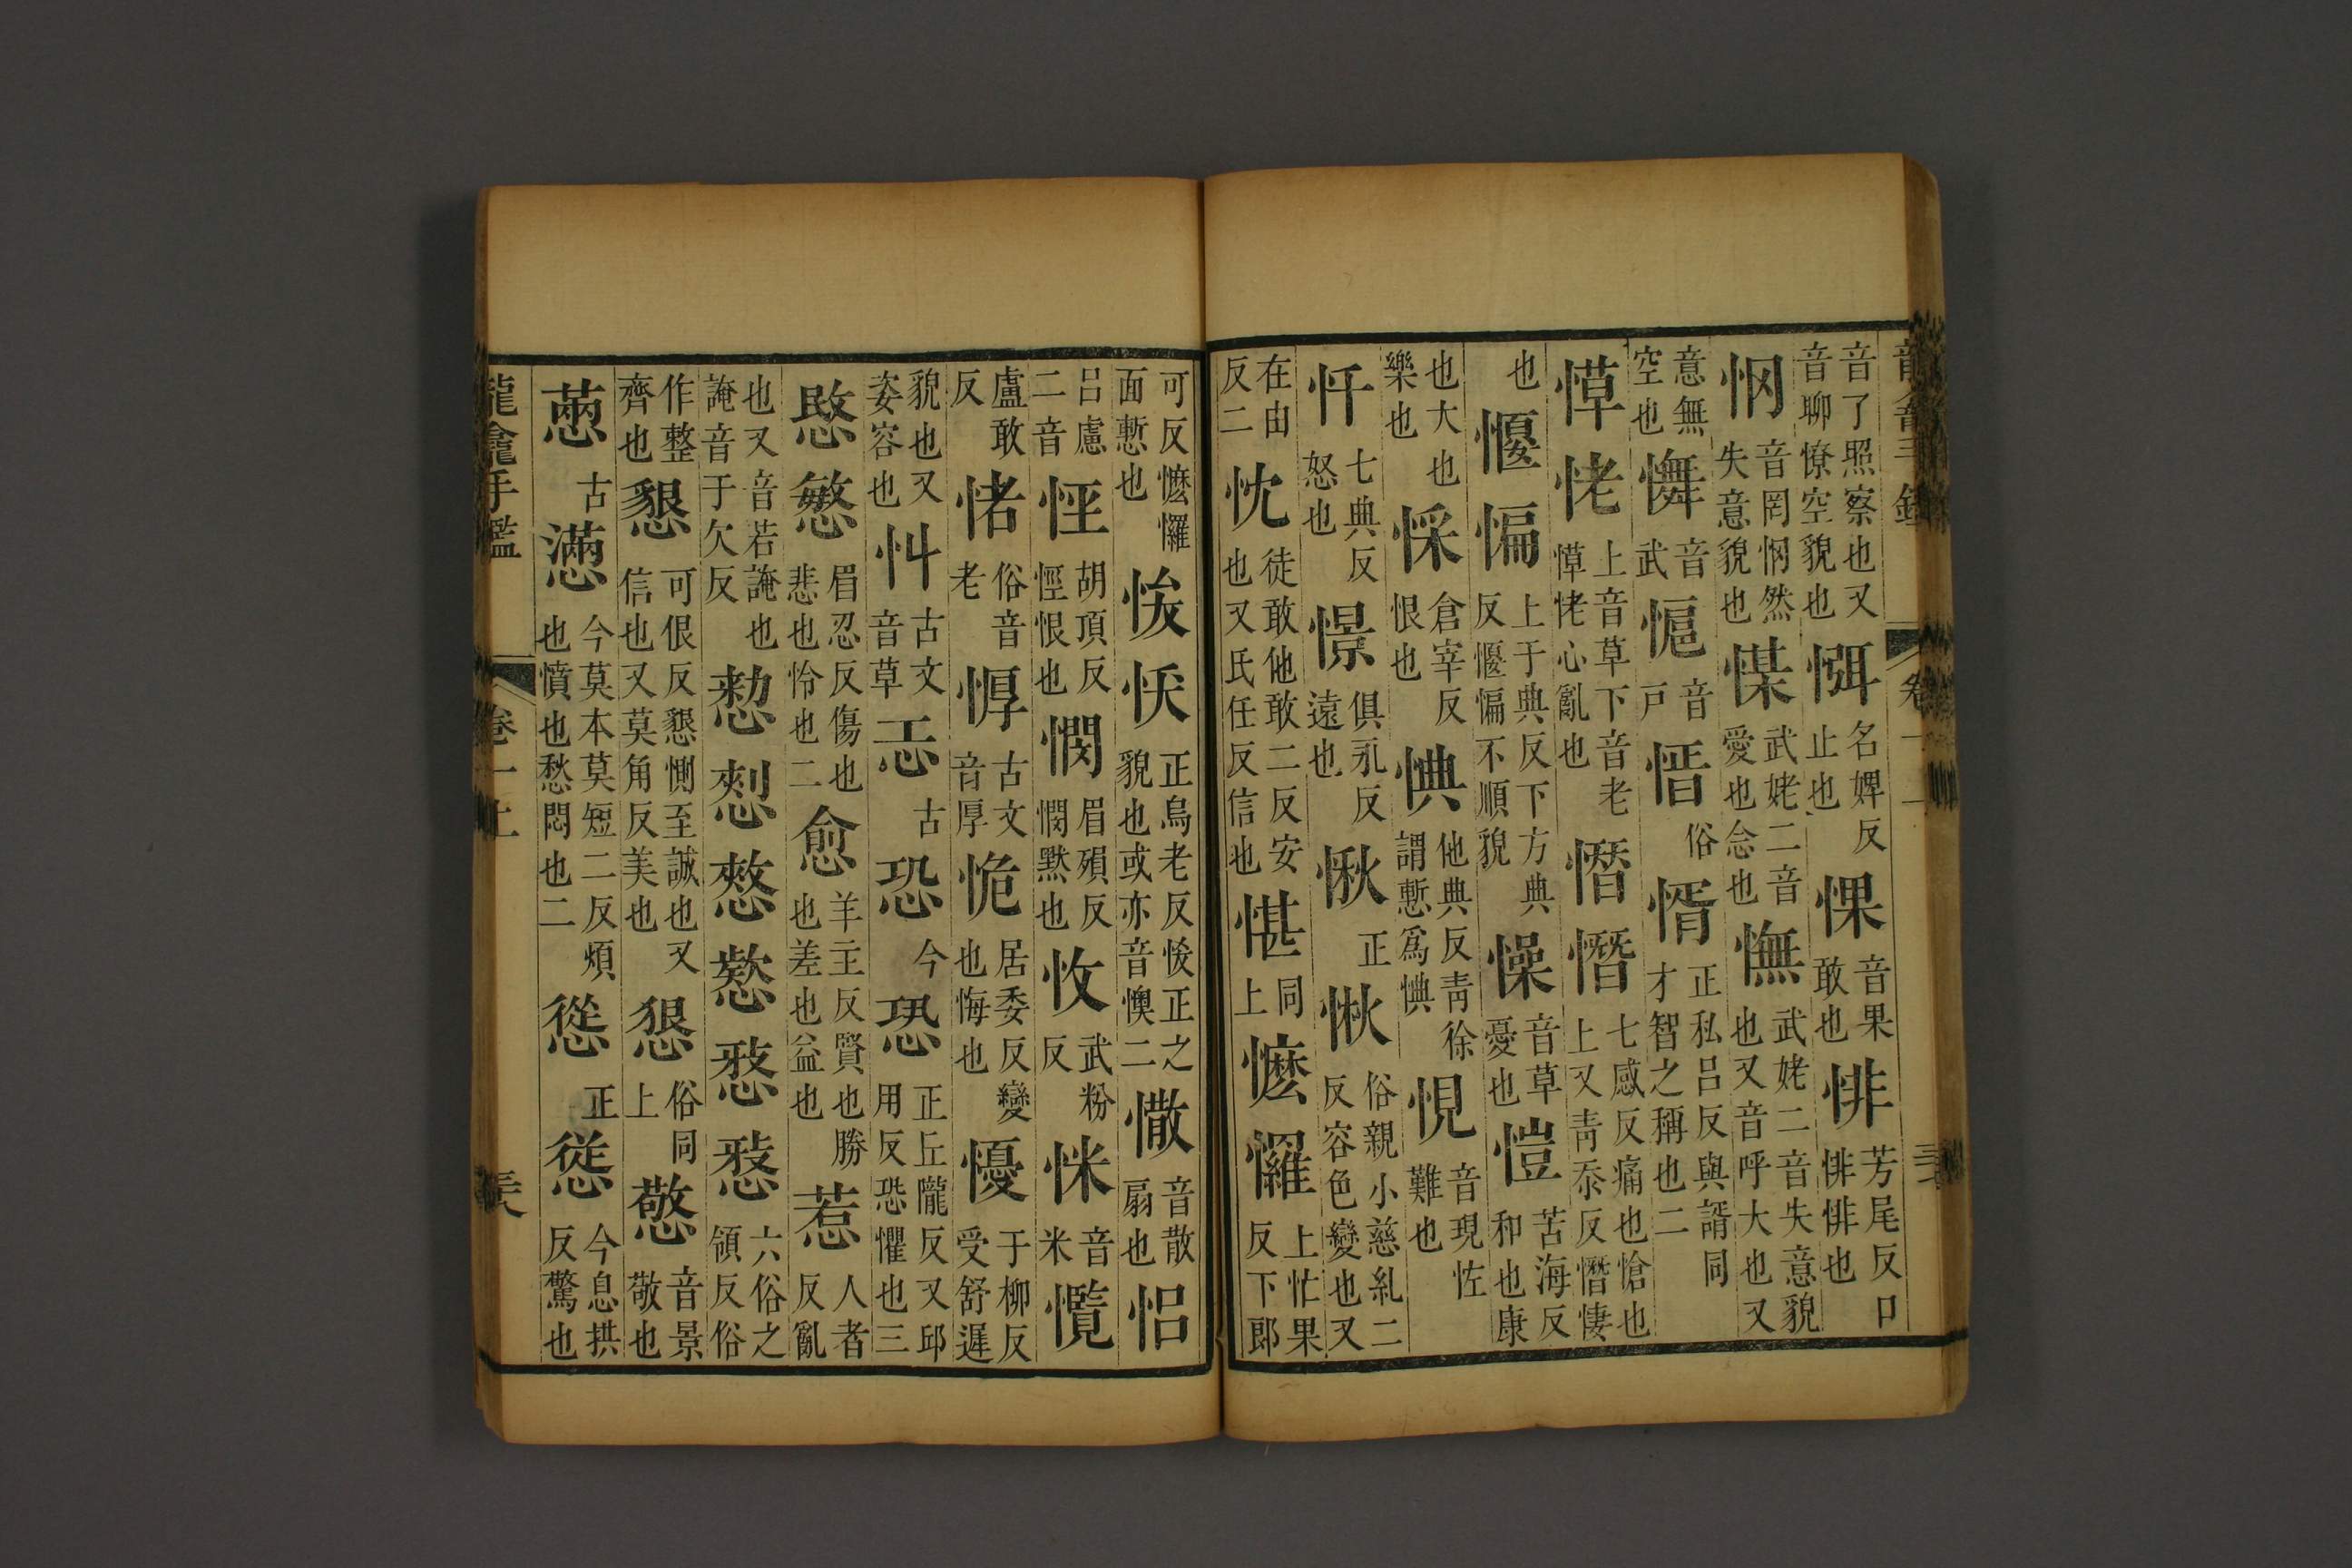 音了照察也又音聊憭空貌也 名婢反止也 惈 音果敢也 悱 芳尾反口悱悱也
音罔惘然失意貌也 武姥二音愛也念也 憮 武姥二音失意貌也又音呼大也又
意無空也 音武 音戶 俗 惰 正私呂反與諝同才智之稱也二
愺恅 上音草下音老愺恅心亂也 憯憯 七感反痛也愴也上又青忝反憯悽
也 愝惼 上于典反下方典反愝惼不順貌 懆 音草憂也 愷 苦海反和也康
也大也樂也 倉宰反恨也 惧 他典反靑徐謂慙爲惧 悓 音現恠難也
忏 七典反怒也 憬 俱永反遠也 愀 正 俗親小慈糺二反容色變也又
在由反二 忱 徒敢他敢二反安也又氏任反信也 愖 同上 懡㦬 上忙果反下郎
龍龕手鑑 卷一上
可反懡㦬面慙也 正烏老反懊正之貌也或亦音懊二 音散扇也
呂慮二音 悭 胡頂反悭恨也 憫 眉殞反憫黙也 武粉反 音米 懢
盧敢反 俗音老 古文音厚 恑 居委反變也悔也 懮 于柳反受舒遲
貌也又姿容也 古文音草 古 恐 今 恐 正丘隴反又邱用反恐懼也三
愍慜 眉忍反傷也悲也怜也二 愈 羊主反賢也勝也差也益也 惹 人者反亂
也又音若諵也諵音于欠反 六俗之領反俗
作整齊也 懇 可佷反懇惻至誠也又信也又莫角反美也 俗同上 憼 音景敬也
古 懣 今莫本莫短二反煩也憤也愁悶也二 正 今息拱反驚也
龍龕手鑑 卷一上 三六